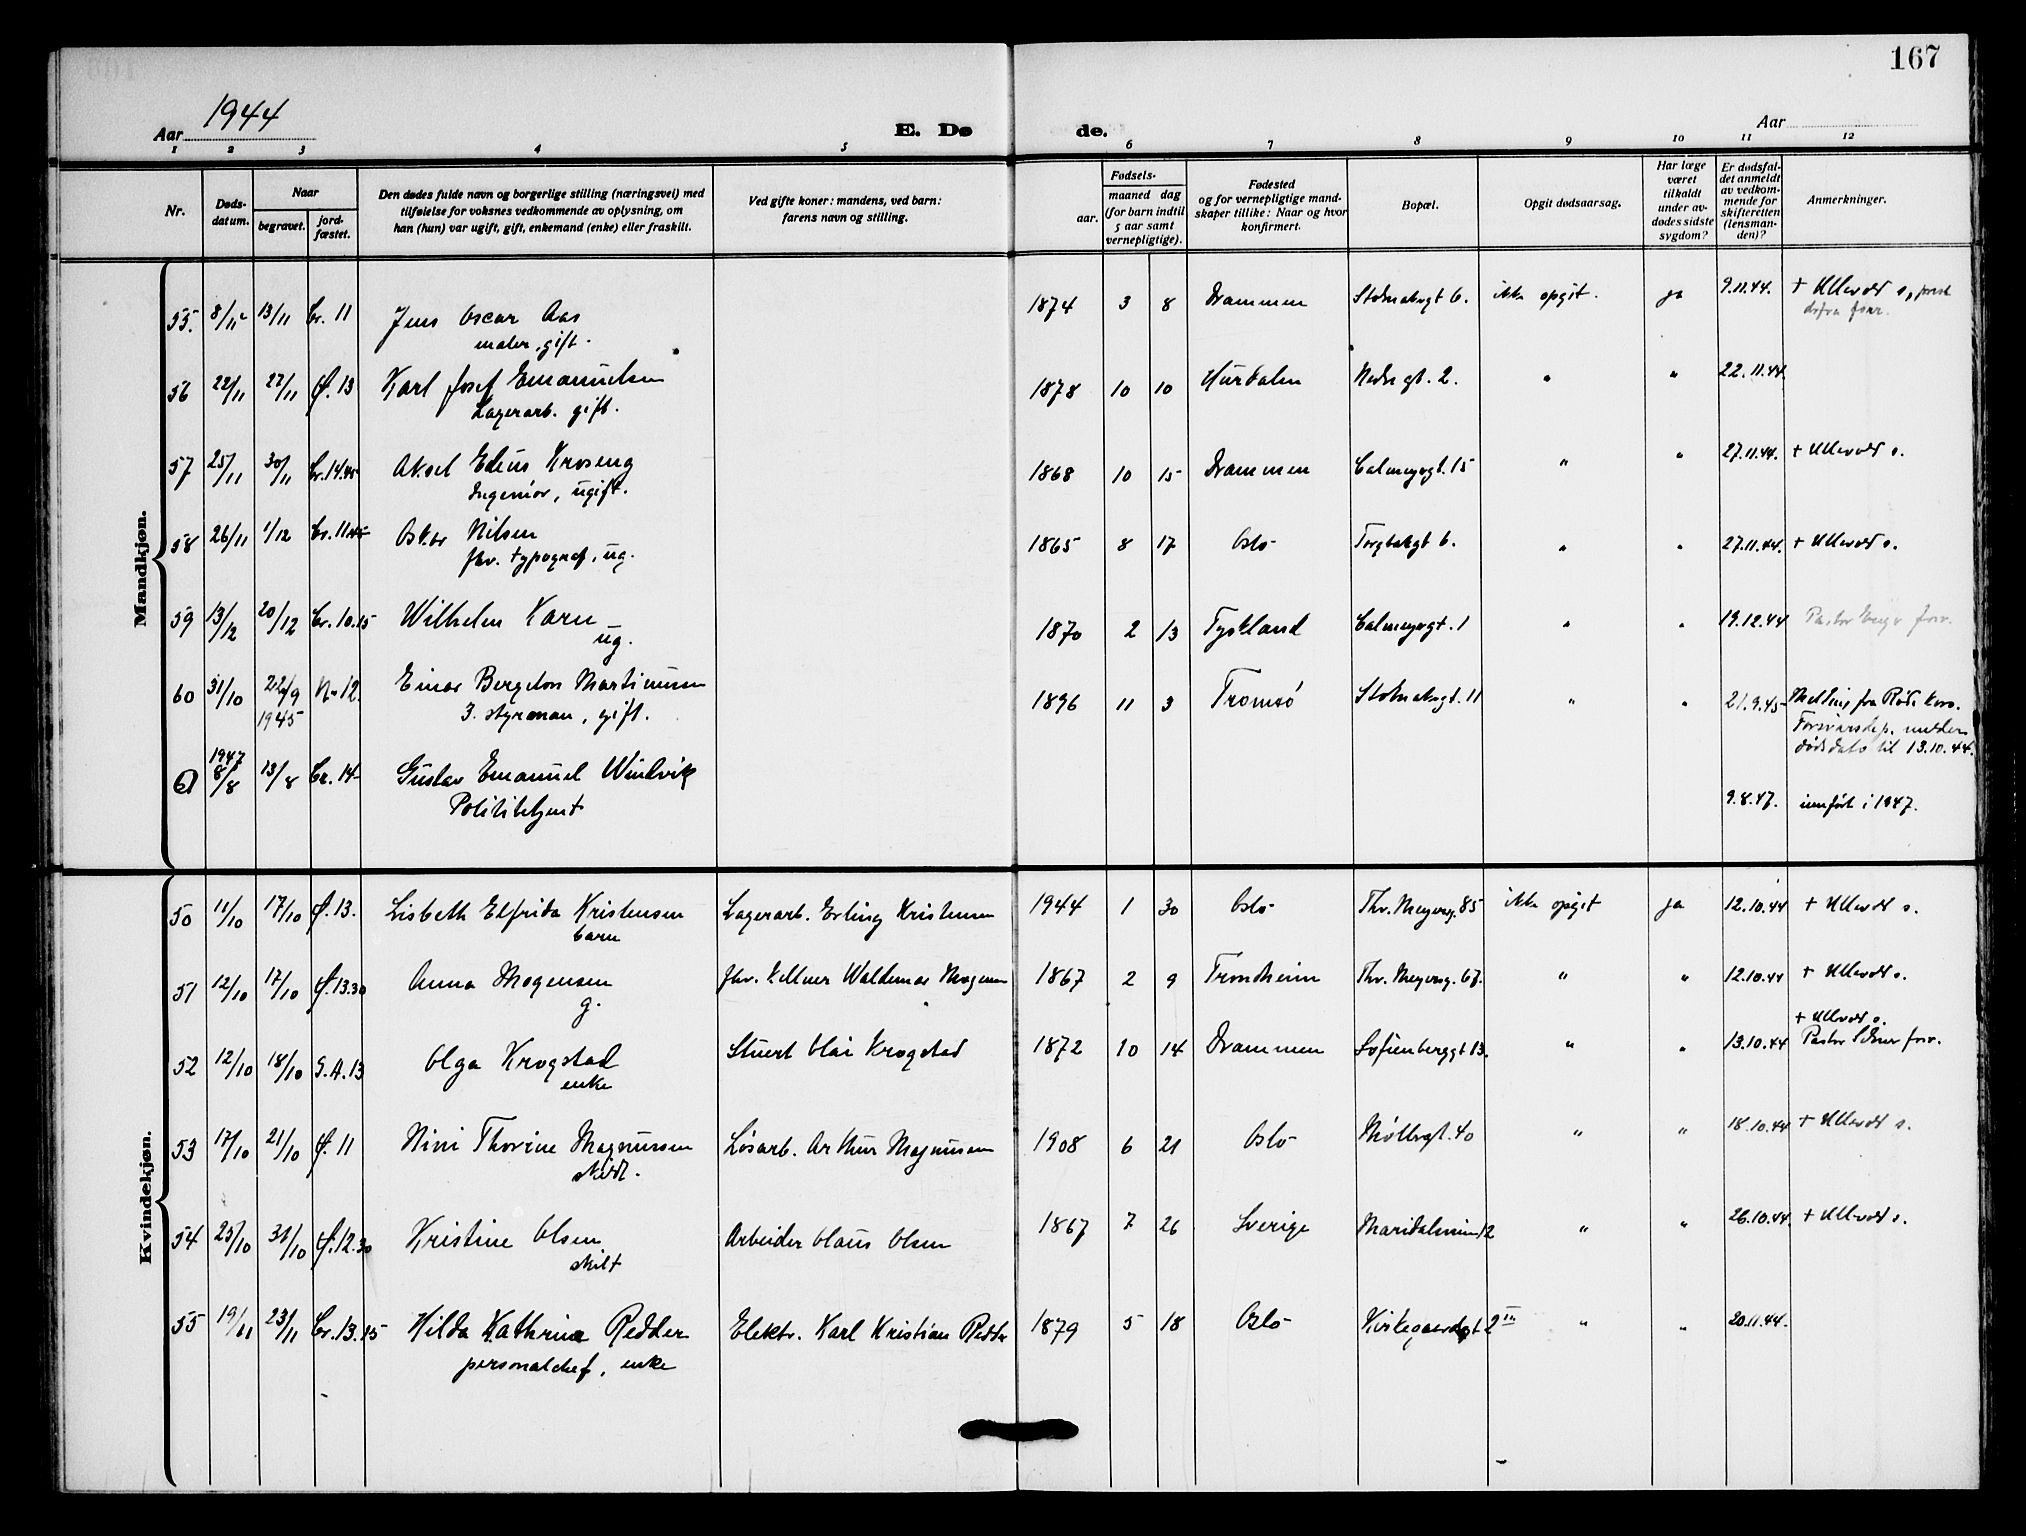 167
1944
Aar
E. Dø
de.
Aar
1 2 3 4 5 6 7 8 9 10 11 12
Nr.
Døds-
datum.
Naar
begravet.
jord-
fæstet.
Den dødes fulde navn og borgerlige stilling (næringsvei) med
tilføielse for voksnes vedkommende av oplysning, om
han (hun) var ugift, gift, enkemand (enke) eller fraskilt.
Ved gifte koner: mandens, ved barn:
farens navn og stilling.
Fødsels-
aar.
maaned dag
(for barn indtil
5 aar samt
vernepligtige).
Fødested
og for vernepligtige mand-
skaper tillike: Naar og hvor
konfirmert.
Bopæl.
Opgit dødsaarsag.
Har læge
været
tilkaldt
under av-
dødes sidste
sygdom?
Er dødsfal-
det anmeldt
av vedkom-
mende for
skifteretten
(lensman-
den)?
Anmerkninger.
Mandkjøn.
55. 8/11 13/11 Cr. 11 Jens Oscar Aas 1874 3 8 Drammen 6. ikke opgit. ja 9.11.44. + Ullevål s.
maler, gift.
56 22/11 27/11 Ø. 13 Karl Josef Emanuelsen 1878 10 10 Hurdalen Nedregt. 2. " " 22.11.44.
Lagerarb. gift.
57 25/11 30/11 Cr. 14.45 Aksel Edius Kroseng 1868 10 15 Drammen Calmeyergt. 15 " " 27.11.44. + Ullevål s.
Ingeniør, ugift.
58 26/11 1/12 Cr. 11.45 Oskar Nilsen 1865 8 17 Oslo Torgbakgt 6. " " 27.11.44. + Ullevål s.
fhv. typograf, ug.
59 13/12 20/12 Cr. 10.15 Wilhelm Karn 1870 2 13 Tyskland Calmeyergt. 1 " " 19.12.44 Pastor forr.
ug.
60 31/10 22/9 N. 12. Einar Bergeton Martinussen 1896 11 3 Tromsø 11 " " 21.9.45 Melding fra Røde Kors.
1945 3. styrman, gift. Forsvarsdep. melder
dødsdato til 13.10.44.
1947
61 8/8 13/8 Cr. 14 Gustav Emanuel Windvik 9.8.47. innført i 1947.
Politibetjent
Kvindekjøn.
50 11/10 17/10 Ø. 13. Lisbeth Elfrida Kristensen Lagerarb. Erling Kristensen 1944 1 30 Oslo Thv. Meyersg. 85 ikke opgit ja 12.10.44 + Ullevål s.
barn
51 12/10 17/10 Ø. 13.30 Anna Mogensen fhv. Kellner Waldemar Mogensen 1867 2 9 Trondheim Thv. Meyersg. 67. " " 12.10.44 + Ullevål s.
g.
+ Ullevål s.
52 12/10 18/10 G.A. 13 Olga Krogstad Stuert Olai Krogstad 1872 10 14 Drammen Sofienberggt 13. " " 13.10.44 Pastor forr.
enke
53 17/10 21/10 Ø. 11 Nini Thorine Magnussen Løsarb. Arthur Magnussen 1908 6 21 Oslo Møllergt. 40 " " 18.10.44 + Ullevål s.
skilt.
54 25/10 31/10 Ø. 12.30 Kristine Olsen Arbeider Olaus Olsen 1867 7 26 Sverige 12 " " 26.10.44 + Ullevål s.
skilt
55 19/11 23/11 Cr. 13.15 Hilda Kathrine Redder Elektr. Karl Kristian Redder 1879 5 18 Oslo Kirkegaardsgt 2 III " " 20.11.44.
personalchef, enke